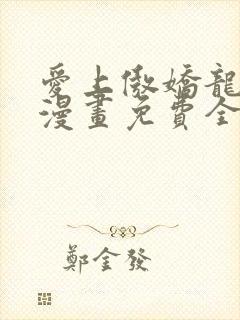 愛上傲嬌龍
漫畫免費全
鄭金發